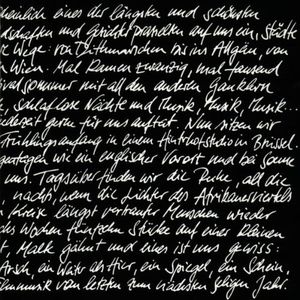 heinlich eines der längsten und schönsten
schaften und Gesichter prasselten auf uns ein, Städte
Wege: von Dithmarschen bis ins Allgäu, von
Wien. Mal kamen zwanzig, mal tausend
sommer mit all den andern Gauklern
schlaflose Nächte und Musik, Musik, Musik...
jederzeit gern für uns auftat. Nun sitzen wir
Frühlingsanfang in einem Hinterhofstudio in Brüssel.
wie ein englischer Vorort und bei Sonne
uns. Tagsüber finden wir die Ruhe, all die
nachts, wenn die Lichter des Afrikanerviertels
Kreis längst vertrauter Menschen wieder
Wochen fünfzehn Stücke auf einer kleinen
Malk gähnt und eines ist uns gewiss:
Arsch, ein Wahr als Hier, ein Spiegel, ein Schein,
filmmusik vom letzten zum nächsten seligen Jahr.